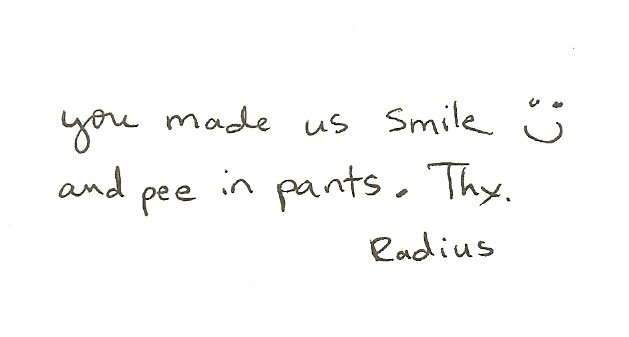 you made us smile ü
and pee in pants. Thx.
Radius